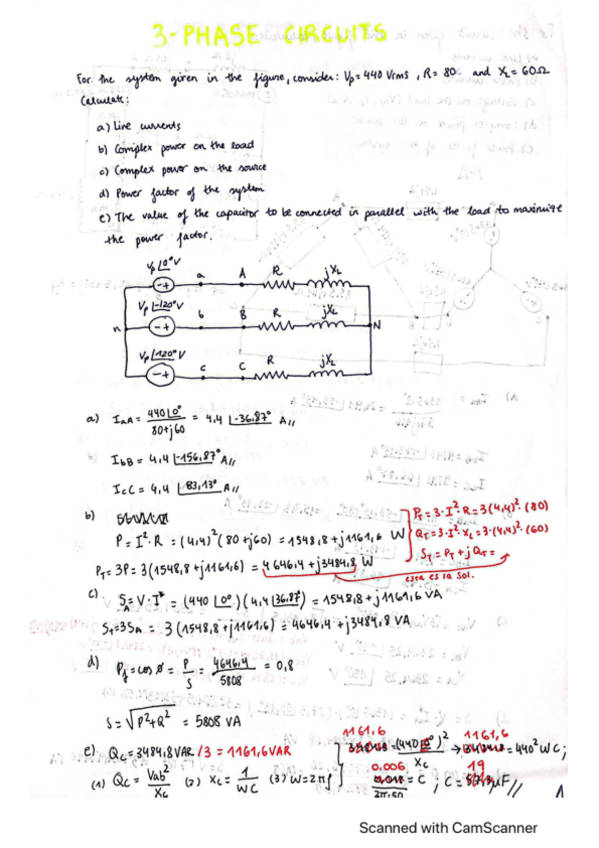 3-PHASE CIRCUITS
For the system given in the figure, consider: Vp = 440 Vrms, R = 80 and XL = 60Ω
Calculate:
a) Line currents
b) Complex power on the load
c) Complex power on the source
d) Power factor of the system
e) The value of the capacitor to be connected in parallel with the load to maximize
the power factor.
Vp|0° V
a A R jXL
Vp|-120° V
n b B R jXL N
Vp|120° V
c C R jXL
a) IaA = 440|0° / 80+j60 = 4,4 |-36.87° A//
IbB = 4,4 |-156,87° A//
IcC = 4,4 |83,13° A//
b)
P = I²·R = (4,4)² (80+j60) = 1548,8 + j1161,6 W
PT = 3P = 3(1548,8 + j1161,6) = 4646,4 + j3484,8 W
PT = 3·I²·R = 3(4,4)²·(80)
QT = 3·I²·XL = 3·(4,4)²·(60)
ST = PT + jQT =
esta es la sol.
c) SA = V·I* = (440 |0°)(4,4 |36.87°) = 1548,8 + j1161,6 VA
ST = 3SA = 3(1548,8 + j1161,6) = 4646,4 + j3484,8 VA
d) Pf = cos ø = P/S = 4646,4/5808 = 0,8
S = √P²+Q² = 5808 VA
e) QC = 3484,8 VAR /3 = 1161,6 VAR
1161,6 = (440)²/XC → 1161,6 = 440² WC;
(1) QC = Vab²/XC (2) XC = 1/WC (3) W = 2πf
0.006/2π·50 = C; C = 19 µF//
1
Scanned with CamScanner